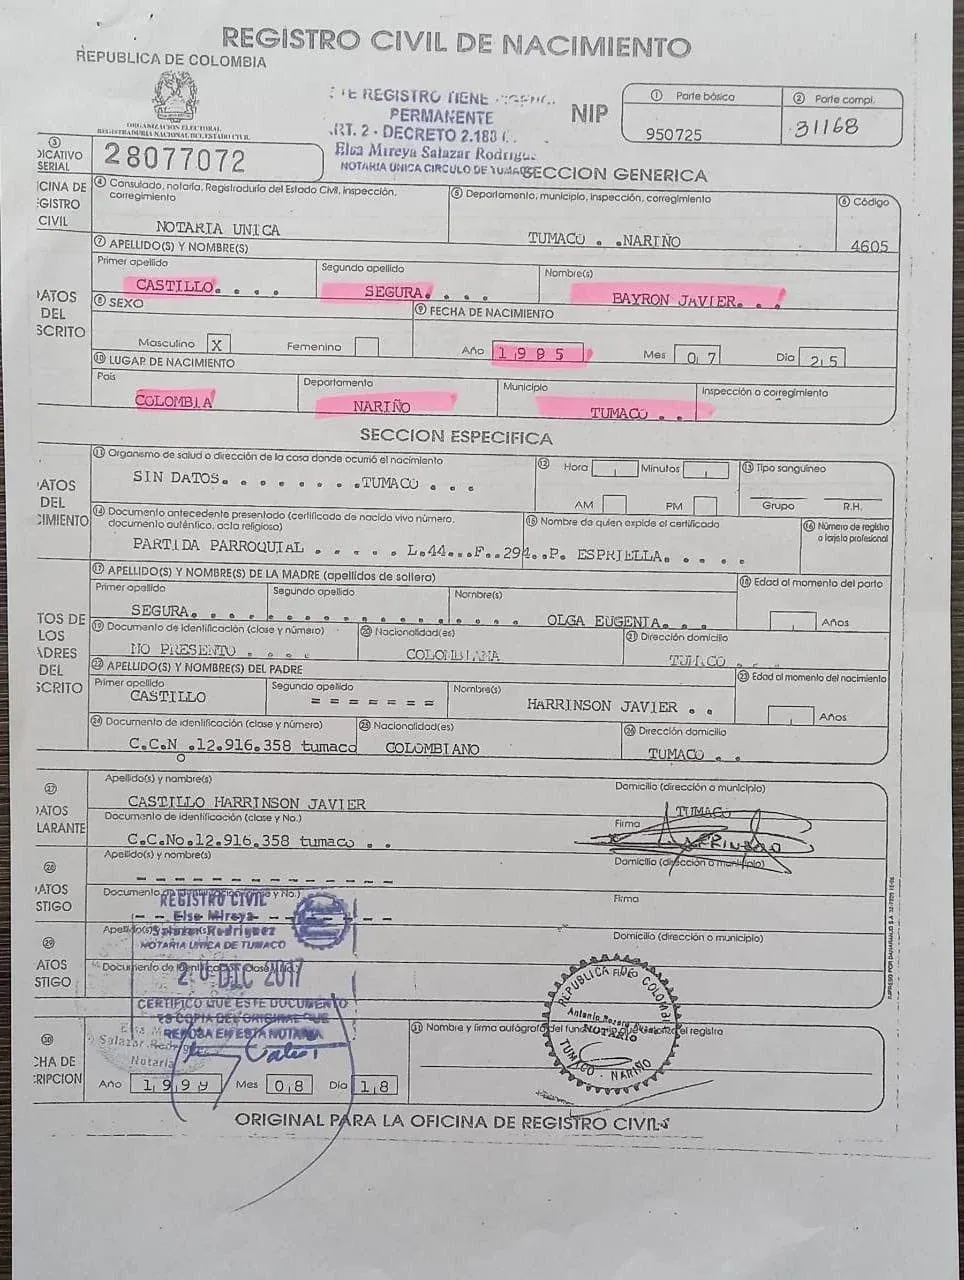 REGISTRO CIVIL DE NACIMIENTO
REPUBLICA DE COLOMBIA
ORGANIZACION ELECTORAL
REGISTRADURIA NACIONAL DEL ESTADO CIVIL
REGISTRO TIENE
PERMANENTE
ART. 2 - DECRETO 2.188
Elsa Mireya Salazar Rodrigue
NOTARIA UNICA CIRCULO DE TUMACO
NIP
① Parte básica
② Parte compl.
950725
31168
③
DICATIVO
SERIAL
28077072
SECCION GENERICA
CINA DE
GISTRO
CIVIL
④ Consulado, notaría, Registraduría del Estado Civil, inspección,
corregimiento
⑤ Departamento, municipio, inspección, corregimiento
⑥ Código
NOTARIA UNICA
TUMACO . .NARIÑO
4605
ATOS
DEL
SCRITO
⑦ APELLIDO(S) Y NOMBRE(S)
Primer apellido
Segundo apellido
Nombre(s)
CASTILLO. . . .
SEGURA. . . .
BAYRON JAVIER. . .
⑧ SEXO
⑨ FECHA DE NACIMIENTO
Masculino X
Femenino
Año 1995
Mes 07
Día 25
⑩ LUGAR DE NACIMIENTO
País
Departamento
Municipio
Inspección o corregimiento
COLOMBIA
NARIÑO
TUMACO . .
SECCION ESPECIFICA
ATOS
DEL
CIMIENTO
⑪ Organismo de salud o dirección de la casa donde ocurrió el nacimiento
SIN DATOS. . . . . . . .TUMACO . . .
⑫ Hora
Minutos
AM
PM
⑬ Tipo sanguíneo
Grupo
R.H.
⑭ Documento antecedente presentado (certificado de nacido vivo número,
documento auténtico, acta religiosa)
⑮ Nombre de quien expide el certificado
⑯ Número de registro
o tarjeta profesional
PARTIDA PARROQUIAL . . . . . L.44...F.294..P. ESPRIELLA. . . .
TOS DE
LOS
ADRES
DEL
SCRITO
⑰ APELLIDO(S) Y NOMBRE(S) DE LA MADRE (apellidos de soltera)
⑱ Edad al momento del parto
Primer apellido
Segundo apellido
Nombre(s)
SEGURA. . . . . . . . . . . . . . OLGA EUGENIA. . .
Años
⑲ Documento de identificación (clase y número)
⑳ Nacionalidad(es)
㉑ Dirección domicilio
NO PRESENTO . . . .
COLOMBIANA
TUMACO . . .
㉒ APELLIDO(S) Y NOMBRE(S) DEL PADRE
㉓ Edad al momento del nacimiento
Primer apellido
Segundo apellido
Nombre(s)
CASTILLO
= = = = = = =
HARRINSON JAVIER . .
Años
㉔ Documento de identificación (clase y número)
㉕ Nacionalidad(es)
㉖ Dirección domicilio
C.C.No.12.916.358 tumaco
COLOMBIANO
TUMACO . .
㉗
ATOS
LARANTE
Apellido(s) y nombre(s)
Domicilio (dirección o municipio)
CASTILLO HARRINSON JAVIER
TUMACO
Documento de identificación (clase y No.)
Firma
C.C.No.12.916.358 tumaco . .
㉘
ATOS
STIGO
Apellido(s) y nombre(s)
Domicilio (dirección o municipio)
Documento de identificación (clase y No.)
Firma
REGISTRO CIVIL
Elsa Mireya
Salazar Rodriguez
NOTARIA UNICA DE TUMACO
㉙
ATOS
STIGO
Domicilio (dirección o municipio)
20 DIC 2017
CERTIFICO QUE ESTE DOCUMENTO
ES COPIA DEL ORIGINAL QUE
REPOSA EN ESTA NOTARIA
REPUBLICA DE COLOMBIA
NOTARIO
TUMACO - NARIÑO
㉚
CHA DE
CRIPCION
Año 1999
Mes 08
Día 18
㉛ Nombre y firma autógrafa del funcionario que autoriza el registro
ORIGINAL PARA LA OFICINA DE REGISTRO CIVIL